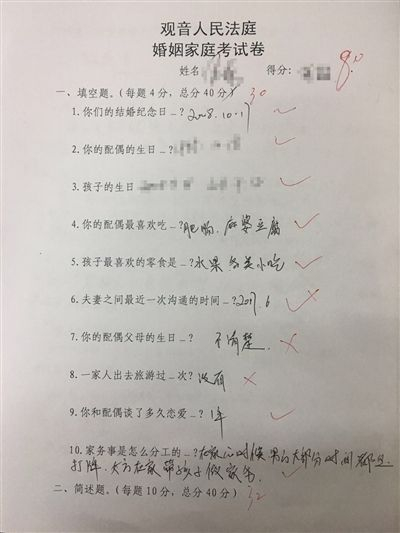 观音人民法庭
婚姻家庭考试卷
姓名 得分：
一、填空题。（每题4分，总分40分） 30
1.你们的结婚纪念日_？2008.10.17
2.你的配偶的生日_？
3.孩子的生日
4.你的配偶最喜欢吃_？肥肠，麻婆豆腐
5.孩子最喜欢的零食是_？水果 各类小吃
6.夫妻之间最近一次沟通的时间_？2017.6
7.你的配偶父母的生日_？ 不清楚
8.一家人出去旅游过_次？没有
9.你和配偶谈了多久恋爱_？1年
10.家务事是怎么分工的_？在家的时候 男的大部分时间都是
打牌，女方在家带孩子做家务
二、简述题。（每题10分，总分40分） 32